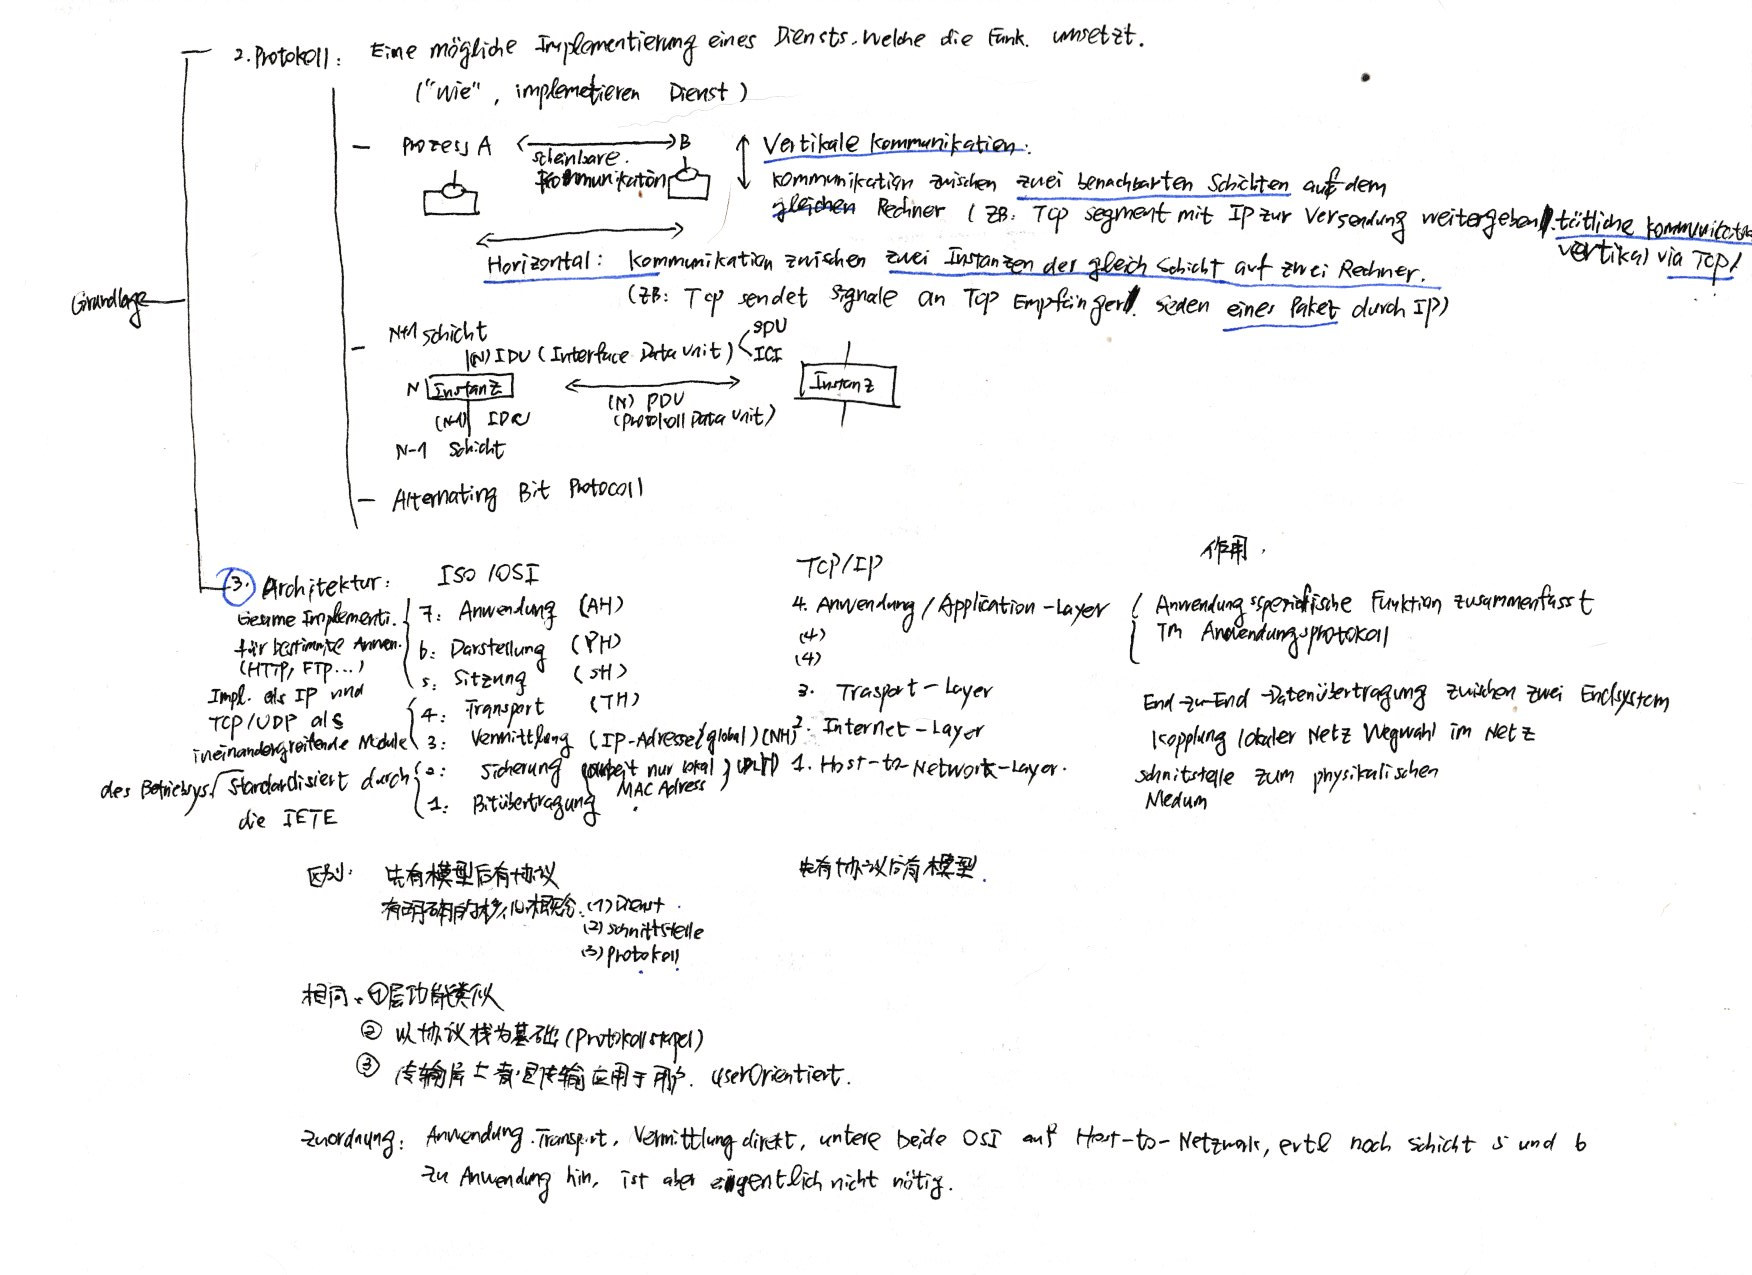 2. Protokoll: Eine mögliche Implementierung eines Diensts. welche die Funk. umsetzt.
("Wie", implemetieren Dienst)
- Prozess A ⟷ B
scheinbare
Kommunikation
Vertikale Kommunikation:
Kommunikation zwischen zwei benachbarten Schichten auf dem
gleichen Rechner (ZB: Tcp segment mit IP zur Versendung weitergeben
vertikal via TCP)
Horizontal: Kommunikation zwischen zwei Instanzen der gleich Schicht auf zwei Rechner.
(ZB: Tcp sendet Signale an Tcp Empfänger. eines Paket durch IP)
Grundlage
- N+1 Schicht
(N) IDU (Interface Data Unit) SPU
ICI
N Instanz
(N) PDU
(Protokoll Data Unit)
Instanz
(N-1) IDU
N-1 Schicht
- Alternating Bit Protocoll
3. Architektur: ISO/OSI TCP/IP 作用.
Implementi.
für bestimmte Anwen.
(HTTP, FTP...)
Impl. als IP und
TCP/UDP als
ineinandergreifende Module
des Betriebsys.
Standardisiert durch
die IETE
7: Anwendung (AH)
6: Darstellung (PH)
5: Sitzung (SH)
4: Transport (TH)
3: Vermittlung (IP-Adresse(global) (NH)
2: Sicherung (arbeit nur lokal
MAC Adress)
1: Bitübertragung
4. Anwendung/Application-Layer
(4)
(4)
3. Trasport-Layer
2. Internet-Layer
1. Host-to-Network-Layer.
Anwendungsspezifische Funktion zusammenfasst
Im Anwendungsprotokoll
End-zu-End-Datenübertragung zwischen zwei Endsystem
Kopplung lokaler Netz Wegwahl im Netz
Schnitstelle zum physikalischen
Medum
区别: 先有模型后有协议 先有协议后有模型.
有明确的核心概念: (1) Dienst
(2) Schnittstelle
(3) Protokoll
相同: ①层功能类似
② 以协议栈为基础 (Protokollstapel)
③ 传输层上 传输应用于用户. userOrientiert.
Zuordnung: Anwendung. Transport, Vermittlung direkt, untere beide OSI auf Host-to-Netzwerk, evtl noch Schicht 5 und 6
zu Anwendung hin, ist aber eigentlich nicht nötig.